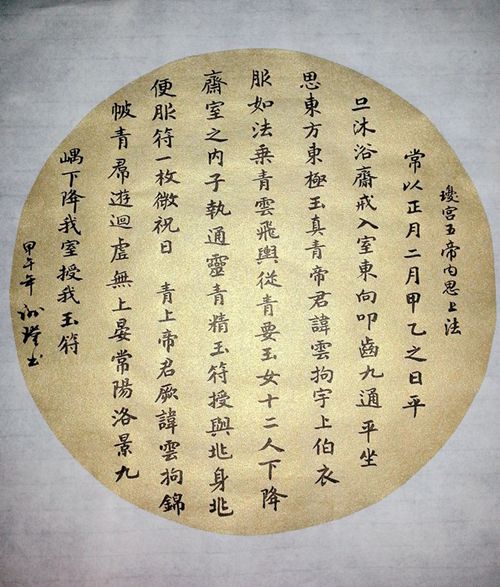 瓊宮五帝内思上法
常以正月二月甲乙之日平
旦沐浴齋戒入室東向叩齒九通平坐
思東方東極玉真青帝君諱雲拘字上伯衣
服如法乘青雲飛輿從青要玉女十二人下降
齋室之内手執通靈青精玉符授與兆身兆
便服符一枚微祝曰 青上帝君厥諱雲拘錦
帔青帬遊迴虛無上晏常陽洛景九
嵎下降我室授我玉符
甲午年 书